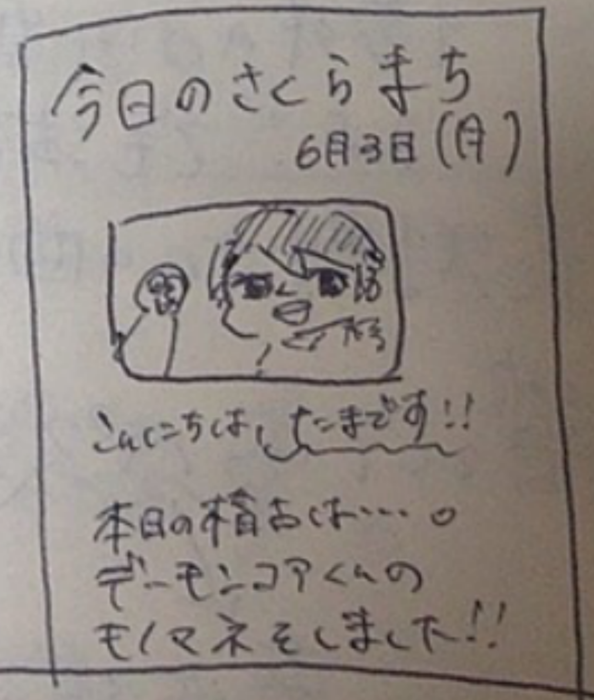 今日のさくらまち
6月3日(月)
こんにちは、たまです!!
本日の稽古は…。
デーモンコアくんの
モノマネをしました!!